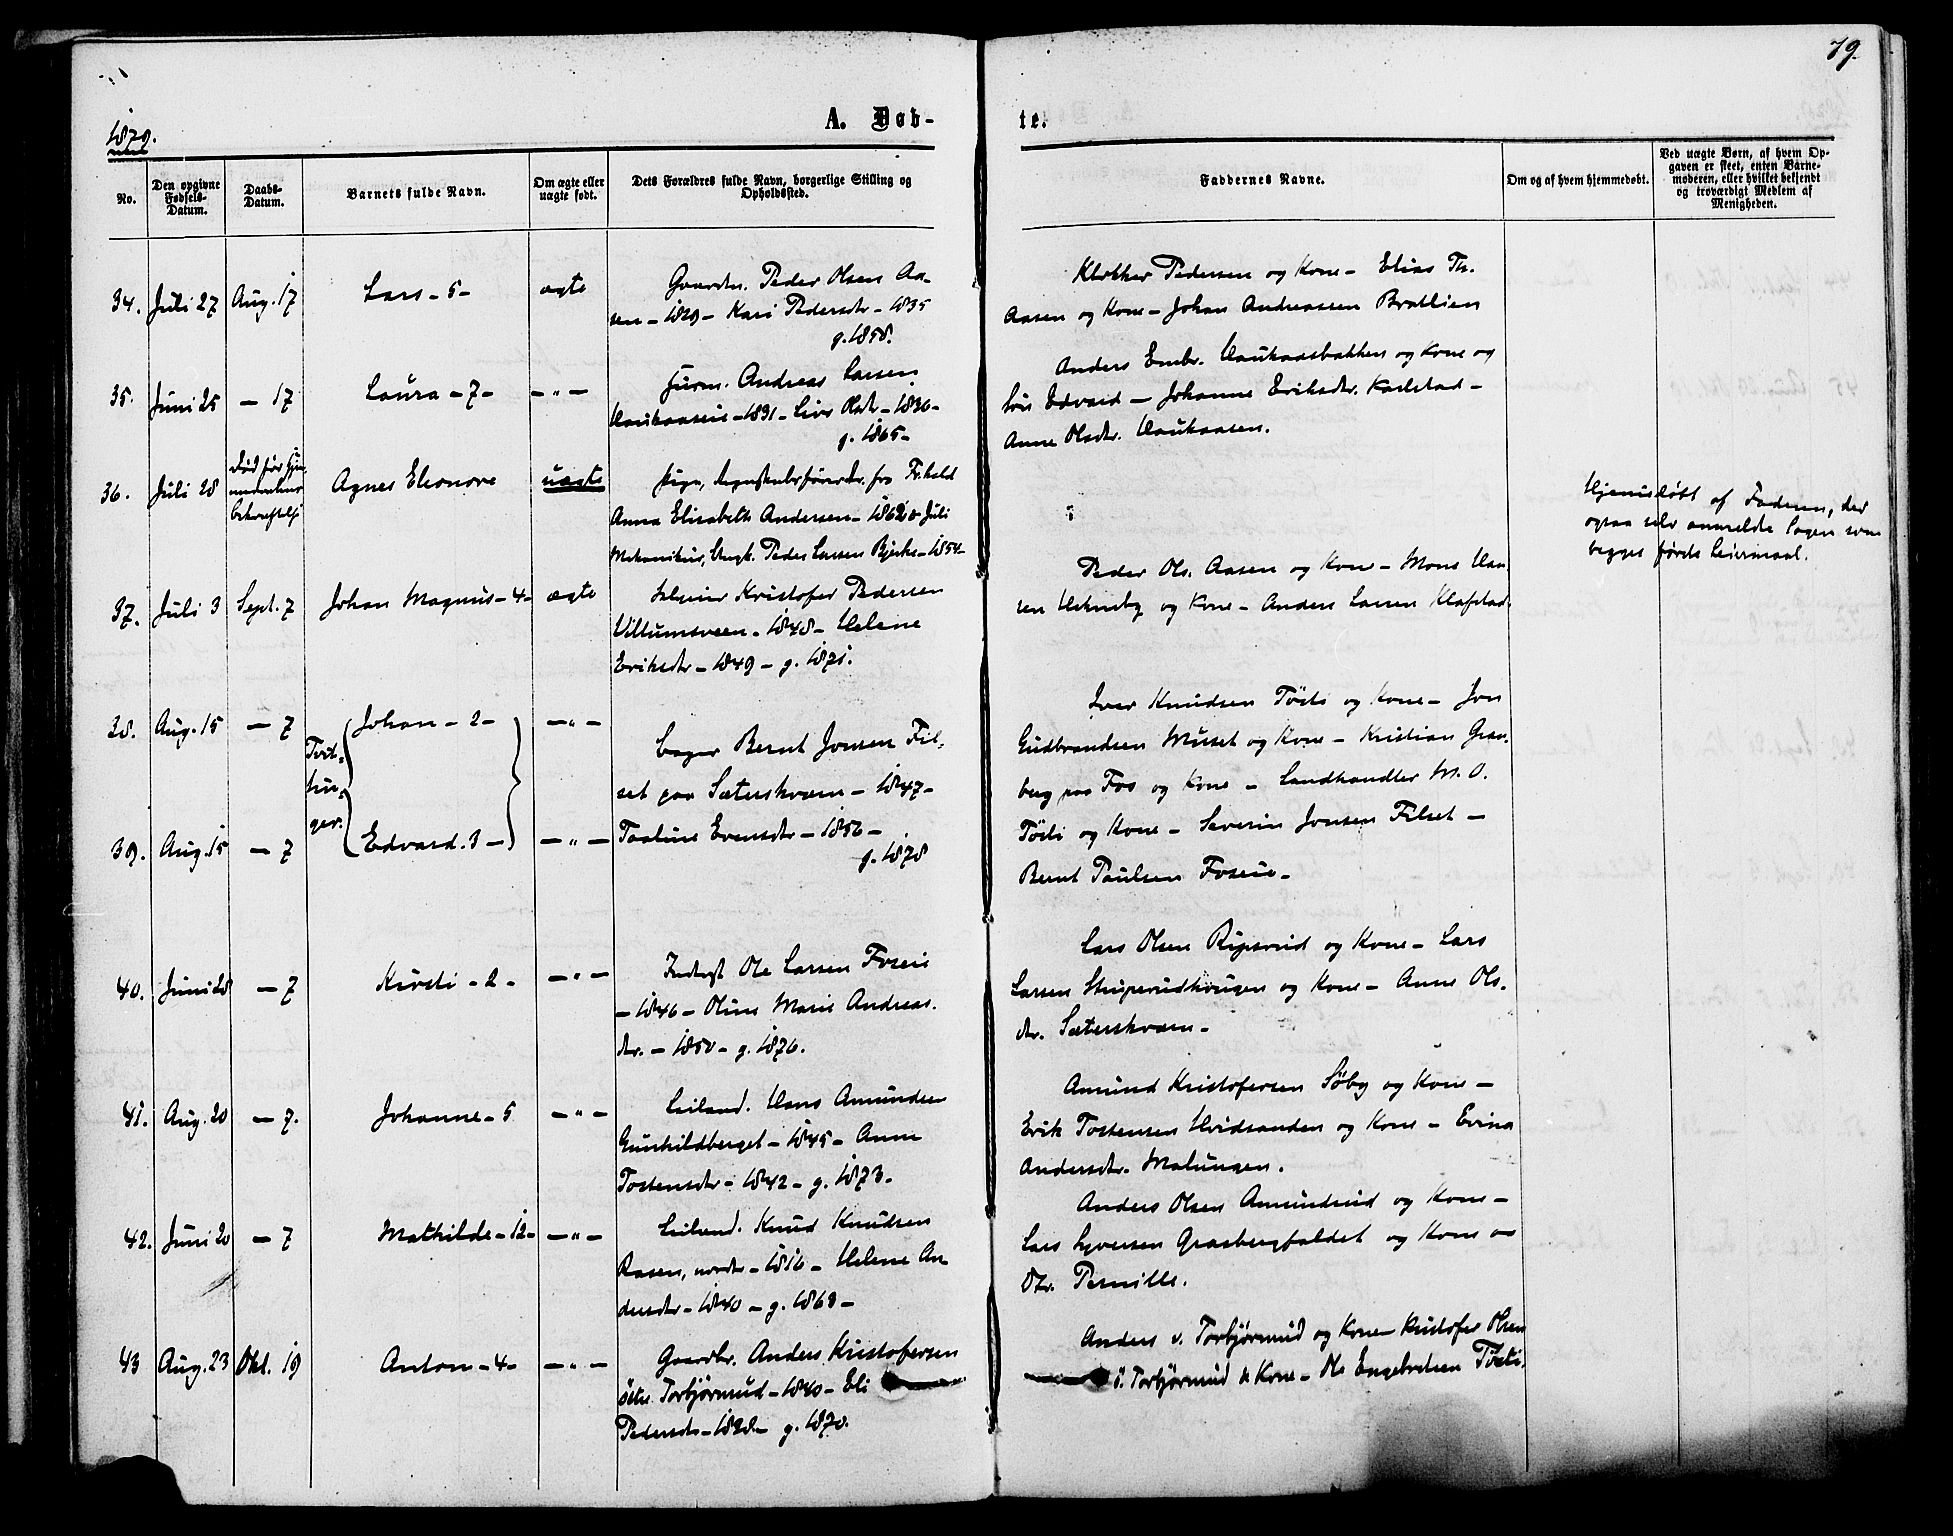 79.
1879.
A. Døb-
te.
No.
Den opgivne Fødsels-Datum.
Daabs-Datum.
Barnets fulde Navn.
Om ægte eller uægte født.
Dets Forældres fulde Navn, borgerlige Stilling og Opholdssted.
Faddernes Navne.
Om og af hvem hjemmedøbt.
Ved uægte Børn, af hvem Op-
gaven er skeet, enten Barne-
moderen, eller hvilket bekjendt
og troværdigt Medlem af
Menigheden.
34. Juli 27 Aug. 17 Lars - 5 - ægte
Gaardbr. Peder Olsen Aa-
sen - 1829 - Kari Pedersdtr - 1835
g. 1858.
Pedersen og Kone - Elias Th.
Aasen og Kone - Johan Andreassen Bratlien
35. Juni 25 - 17 Laura - 7 - - " -
Andreas Larsen
Haukaaseie - 1831 - Live Olsdtr - 1836 -
g. 1865 -
Anders Embr. Haukaasbakken og Kone og
Edvard - Johanne Eriksdtr. Karlstad -
Anne Olsdtr. Haukaasen.
36. Juli 28 Død før
Agnes Eleonore uægte
Pige, fra Fr.hald
Anna Elisabeth Andersen - 1862
Mekanikus, Ungk. Peder Larsen Bjerke - 1854 -
Hjemmedøbt af Faderen, der
ogsaa selv anmeldte Sagen som
begges første Leiermaal.
37. Juli 3 Sept. 7 Johan Magnus - 4 - ægte
Kristofer Pedersen
Villumsveen - 1848 - Helene
Eriksdtr - 1849 - g. 1871.
Peder Ols. Aasen og Kone - Mons Han-
sen og Kone - Anders Larsen Klafstad.
38. Aug. 15 - 7 Johan - 2 - - " -
Tvil-
lin-
ger.
39. Aug. 15 - 7 Edvard. 3 - - " -
Bager Bernt Jonsen Fil-
set paa Sæterskværn - 1847 -
Evensdtr - 1856 -
g. 1878
Iver Knudsen Tösti og Kone - Jon
Gudbrandsen Muset og Kone - Kristian Gran-
berg paa Fos og Kone - Landhandler M. O.
Tösti og Kone - Severin Jonsen Filset -
Bernt Paulsen Foseie -
40. Juni 28 - 7 Kirsti - 2 - - " -
Inderst Ole Larsen Foseie
- 1846 - Oline Marie Andreas-
dtr. - 1850 - g. 1876.
Lars Olsen Ripsrud og Kone - Lars
Larsen og Kone - Anne Ols-
dtr. Sæterskværn -
41. Aug. 20 - 7. Johanne - 5 - " -
Leilend. Hans Amundsen
Gunhildberget - 1845 - Anne
Tostensdtr - 1842 - g. 1873 -
Amund Kristofersen Söby og Kone -
Erik Tostensen Hvidsanden og Kone - Evina
Andersdtr. Malungen.
42. Juni 20 - 7 Mathilde - 12 - - " -
Leilend. Knud Knudsen
Rasen, nordr - 1816 - Helene An-
dersdtr - 1840 - g. 1863 -
Anders Olsen Amundrud og Kone -
Lars Syversen Grasbergfaldet og Kone og
Dtr. Pernille.
43 Aug. 23 Okt. 19 Anton - 4 - - " -
Gaardbr. Anders Kristofersen
östre Torbjörnrud - 1840 - Eli
Pedersdtr - 1828 - g. 1870.
Anders v. Torbjörnrud og Kone Kristofer Olsen
ö. Torbjörnrud & Kone - Ole Engebretsen Tösti.